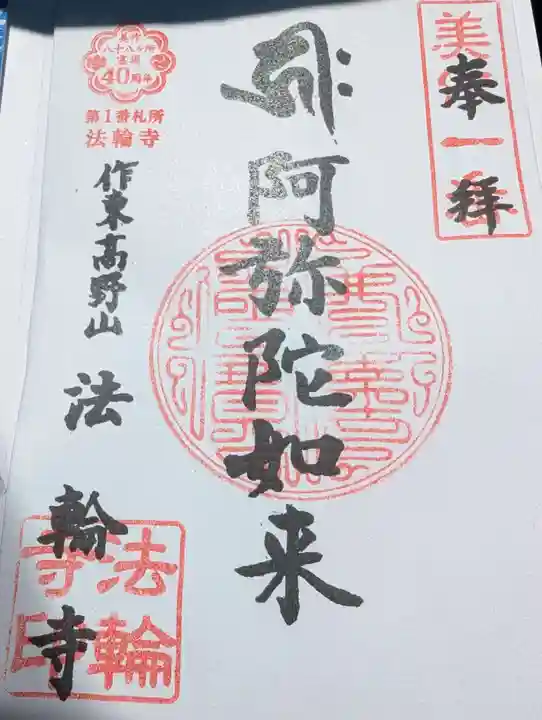 奉拝
美 一番
阿弥陀如来
美作
八十八ヶ所
霊場
40周年
第1番札所
法輪寺
作東高野山
法輪寺
法輪寺印